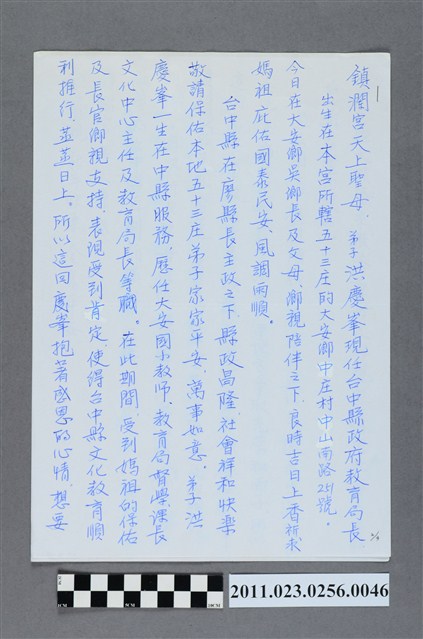 鎮瀾宮天上聖母、弟子洪慶峯現任台中縣政府教育局長、
出生在本宮所轄五十三庄的大安鄉中庄村中山南路251號。
今日在大安鄉吳鄉長及父母、鄉親陪伴之下、良時吉日上香祈求
媽祖庇佑國泰民安、風調雨順。
台中縣在廖縣長主政之下、縣政昌隆、社會祥和快樂
敬請保佑本地五十三庄弟子家家平安、萬事如意。弟子洪
慶峯一生在中縣服務。歷任大安國小教師、教育局督學、課長
文化中心主任及教育局長等職。在此期間、受到媽祖的保佑
及長官鄉親支持、表現受到肯定、使得台中縣文化教育順
利推行、蒸蒸日上。所以這回慶峯抱著感恩的心情、想要
2011.023.0256.0046